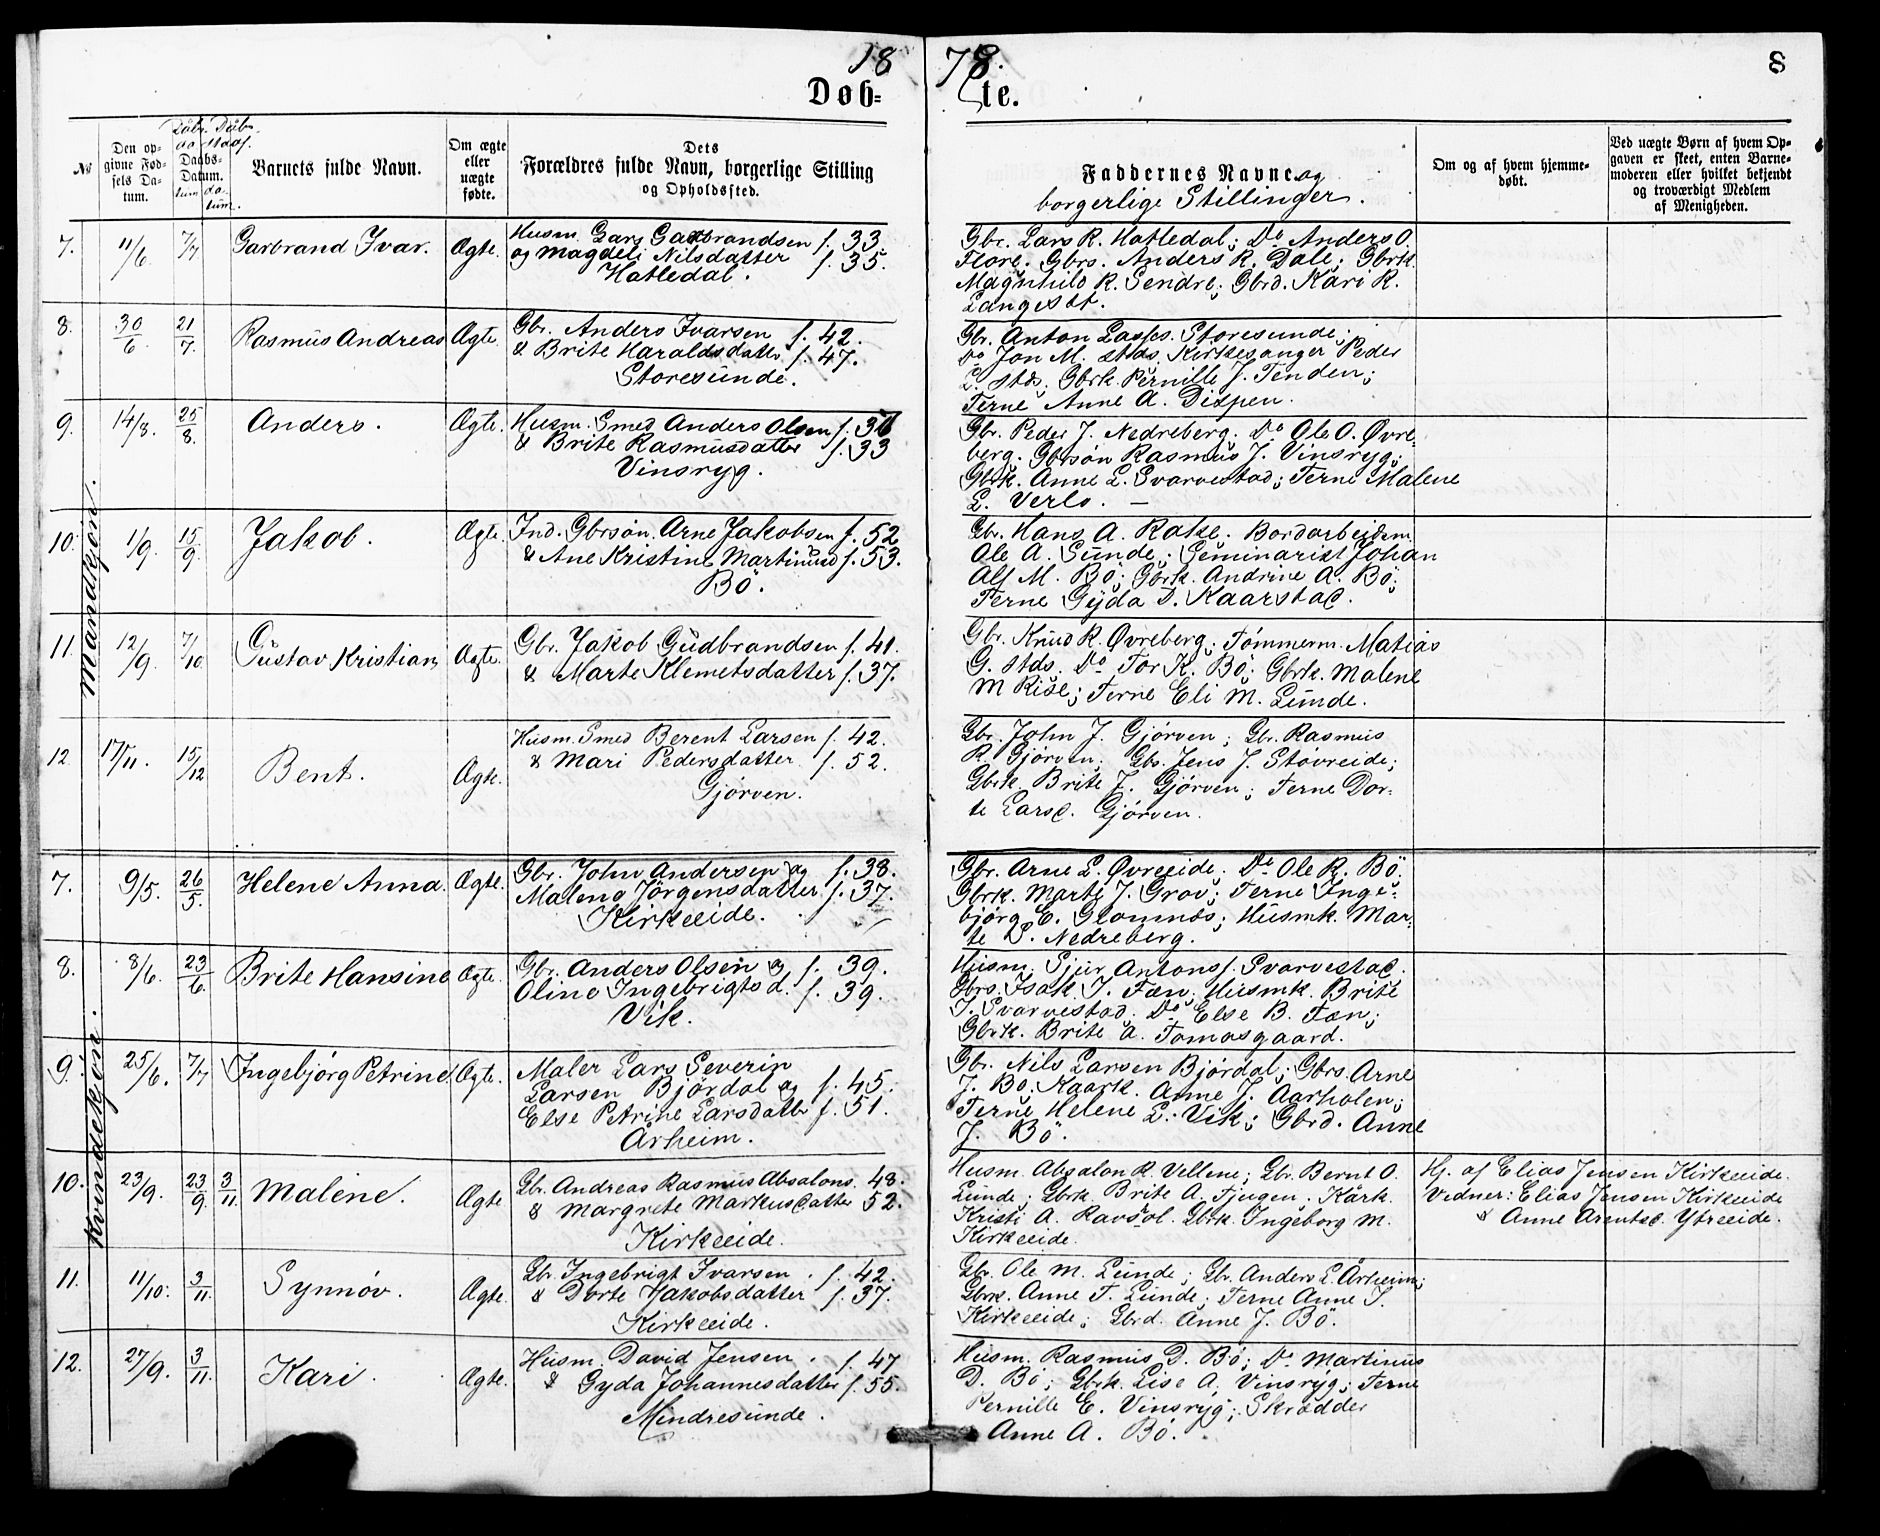 1878. 8
Døb=te.
№
Den op-
givne Fød-
sels Da-
tum.
Daabs-
Datum.
Barnets fulde Navn.
Om ægte
eller
uægte
fødte.
Dets
Forældres fulde Navn, borgerlige Stilling
og Opholdssted.
Faddernes Navne og
borgerlige Stillinger.
Om og af hvem hjemme-
døbt.
Ved uægte Børn af hvem Op-
gaven er skeet, enten Barne-
moderen eller hvilket bekjendt
og troværdigt Medlem
af Menigheden.
Mandkjøn.
7. 11/6 7/7 Garbrand Ivar. Ægte.
Husm. Lars Garbrandsen f. 33.
og Magdeli Nilsdatter f. 35.
Hatledal.
Gbr. Lars R. Hatledal; Do Anders O.
Flore. Gbrs. Anders R. Dale; Gbrk.
Magnhild R. Sendre; Gbrd. Kari R.
Langeset.
8. 30/6 21/7. Rasmus Andreas Ægte.
Gbr. Anders Ivarsen f. 42.
& Brite Haraldsdatter f. 47.
Storesunde.
Gbr. Anton Lass. Storesunde;
Do Jon M. stds. Kirkesanger Peder
L. stds. Gbrk. Pernille J. Tenden;
Terne Anne A. Dispen.
9. 14/8. 25/8. Anders. Ægte.
Husm. Smed Anders Olsen f. 36
& Brite Rasmusdatter f. 33
Vinsryg.
Gbr. Peder J. Nedreberg; Do Ole O. Øvre
berg. Gbrsøn Rasmus J. Vinsryg;
Gbrk. Anne L. Svarvestad; Terne Malene
L. Verlo. —
10. 1/9. 15/9. Jakob. Ægte.
Ind. Gbrsøn. Arne Jakobsen f. 52
& Ane Kristine Martinusd f. 53.
Bö.
Gbr. Hans A. Rake. Bordarbeiderm.
Ole A. Sunde; Seminarist Johan
Alf M. Bö; Gbrk. Andrine A. Bö;
Terne Gyda D. Kaarstad.
11. 12/9. 7/10 Gustav Kristian, Ægte.
Gbr. Jakob Gudbrandsen f. 41.
& Marte Klemetsdatter f. 37.
Gbr. Knud R. Øvreberg; Tömmerm. Matias
G. stds. Do Tor K. Bö; Gbrk. Malene
M Rise; Terne Eli M. Lunde.
12. 17/11. 15/12 Bent. Ægte.
Husm. Smed Berent Larsen f. 42.
& Mari Pedersdatter f. 52.
Gjörven.
Gbr. John J. Gjörven; Gbr. Rasmus
R. Gjörven; Gbr. Jens J. Stövreide;
Gbrk. Brite J. Gjörven; Terne Dor-
te Larsd. Gjörven.
Kvindekjön.
7. 9/5. 26/5. Helene Anna. Ægte.
Gbr. John Andersen og f. 38.
Malene Jörgensdatter f. 37.
Kirkeeide.
Gbr. Arne L. Øvreeide; Do Ole R. Bö.
Gbrk. Marte J. Grov; Terne Inge-
björg E. Glomnes; Husmk. Mar-
te S. Nedreberg.
8. 8/6. 23/6. Brite Hansine Ægte.
Gbr. Anders Olsen og f. 39.
Oline Ingebrigtsd. f. 39.
Vik.
Husm. Sjur Antons. Svarvestad.
Gbrs. Isak J. Fæn; Husmk. Brite
J. Svarvestad. Do Else B. Fæn;
Gbrk. Brite A. Tomasgaard.
9. 25/6. 7/7 Ingebjörg Petrine Ægte.
Maler Lars Severin
Larsen Björdal og f. 45.
Else Petrine Larsdatter f. 51.
Årheim.
Gbr. Nils Larsen Björdal; Gbrs. Arne
J. Bö. Kaark. Anne J. Aarholen;
Terne Helene L. Vik; Gbrd. Anne
J. Bö.
10. 23/9. 23/9. 3/11. Malene. Ægte
Gbr. Andreas Rasmus Absalons. 48.
& Margrete Markusdatter 52.
Kirkeeide.
Husm. Absalon R. Vellene; Gbr. Bernt O.
Lunde; Gbrk. Brite A. Tjugen. Kårk.
Kristi A. Ravsol. Gbrk. Ingeborg M.
Kirkeeide.
Hj. af Elias Jensen Kirkeeide.
Vidner: Elias Jensen Kirkeeide
& Anne Arentsd. Ytreeide.
11. 11/10. 3/11. Synnöv. Ægte.
Gbr. Ingebrigt Ivarsen f. 42.
& Dorte Jakobsdatter f. 37.
Kirkeeide.
Gbr. Ole M. Lunde; Gbr. Anders L. Årheim;
Gbrk. Anne T. Lunde; Terne Anne I.
Kirkeeide; Gbrd. Anne J. Bö.
12. 27/9. 3/11. Kari. Ægte.
Husm. David Jensen f. 47
& Gyda Johannesdatter f. 55.
Mindresunde.
Husm. Rasmus D. Bö; Do Martinus
D. Bö; Gbrk. Lise A. Vinsryg; Terne
Pernille E. Vinsryg; Skrædder
Anne A. Bö.